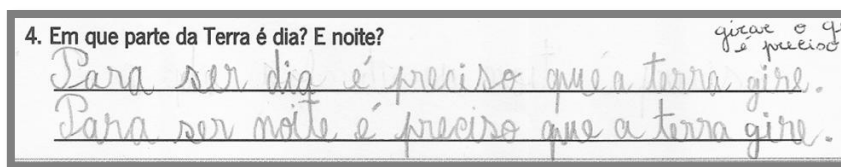 4. Em que parte da Terra é dia? E noite?
girar o
é preciso
Para ser dia é preciso que a terra gire.
Para ser noite é preciso que a terra gire.